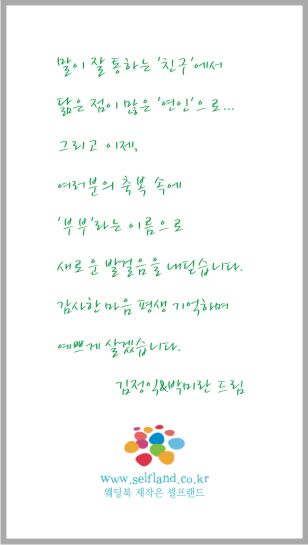 말이 잘 통하는 '친구'에서
닮은 점이 많은 '연인'으로...
그리고 이제,
여러분의 축복 속에
'부부'라는 이름으로
새로운 발걸음을 내딛습니다.
감사한 마음 평생 기억하며
예쁘게 살겠습니다.
김정익&박미란 드림
www.selfland.co.kr
웨딩북 제작은 셀프랜드